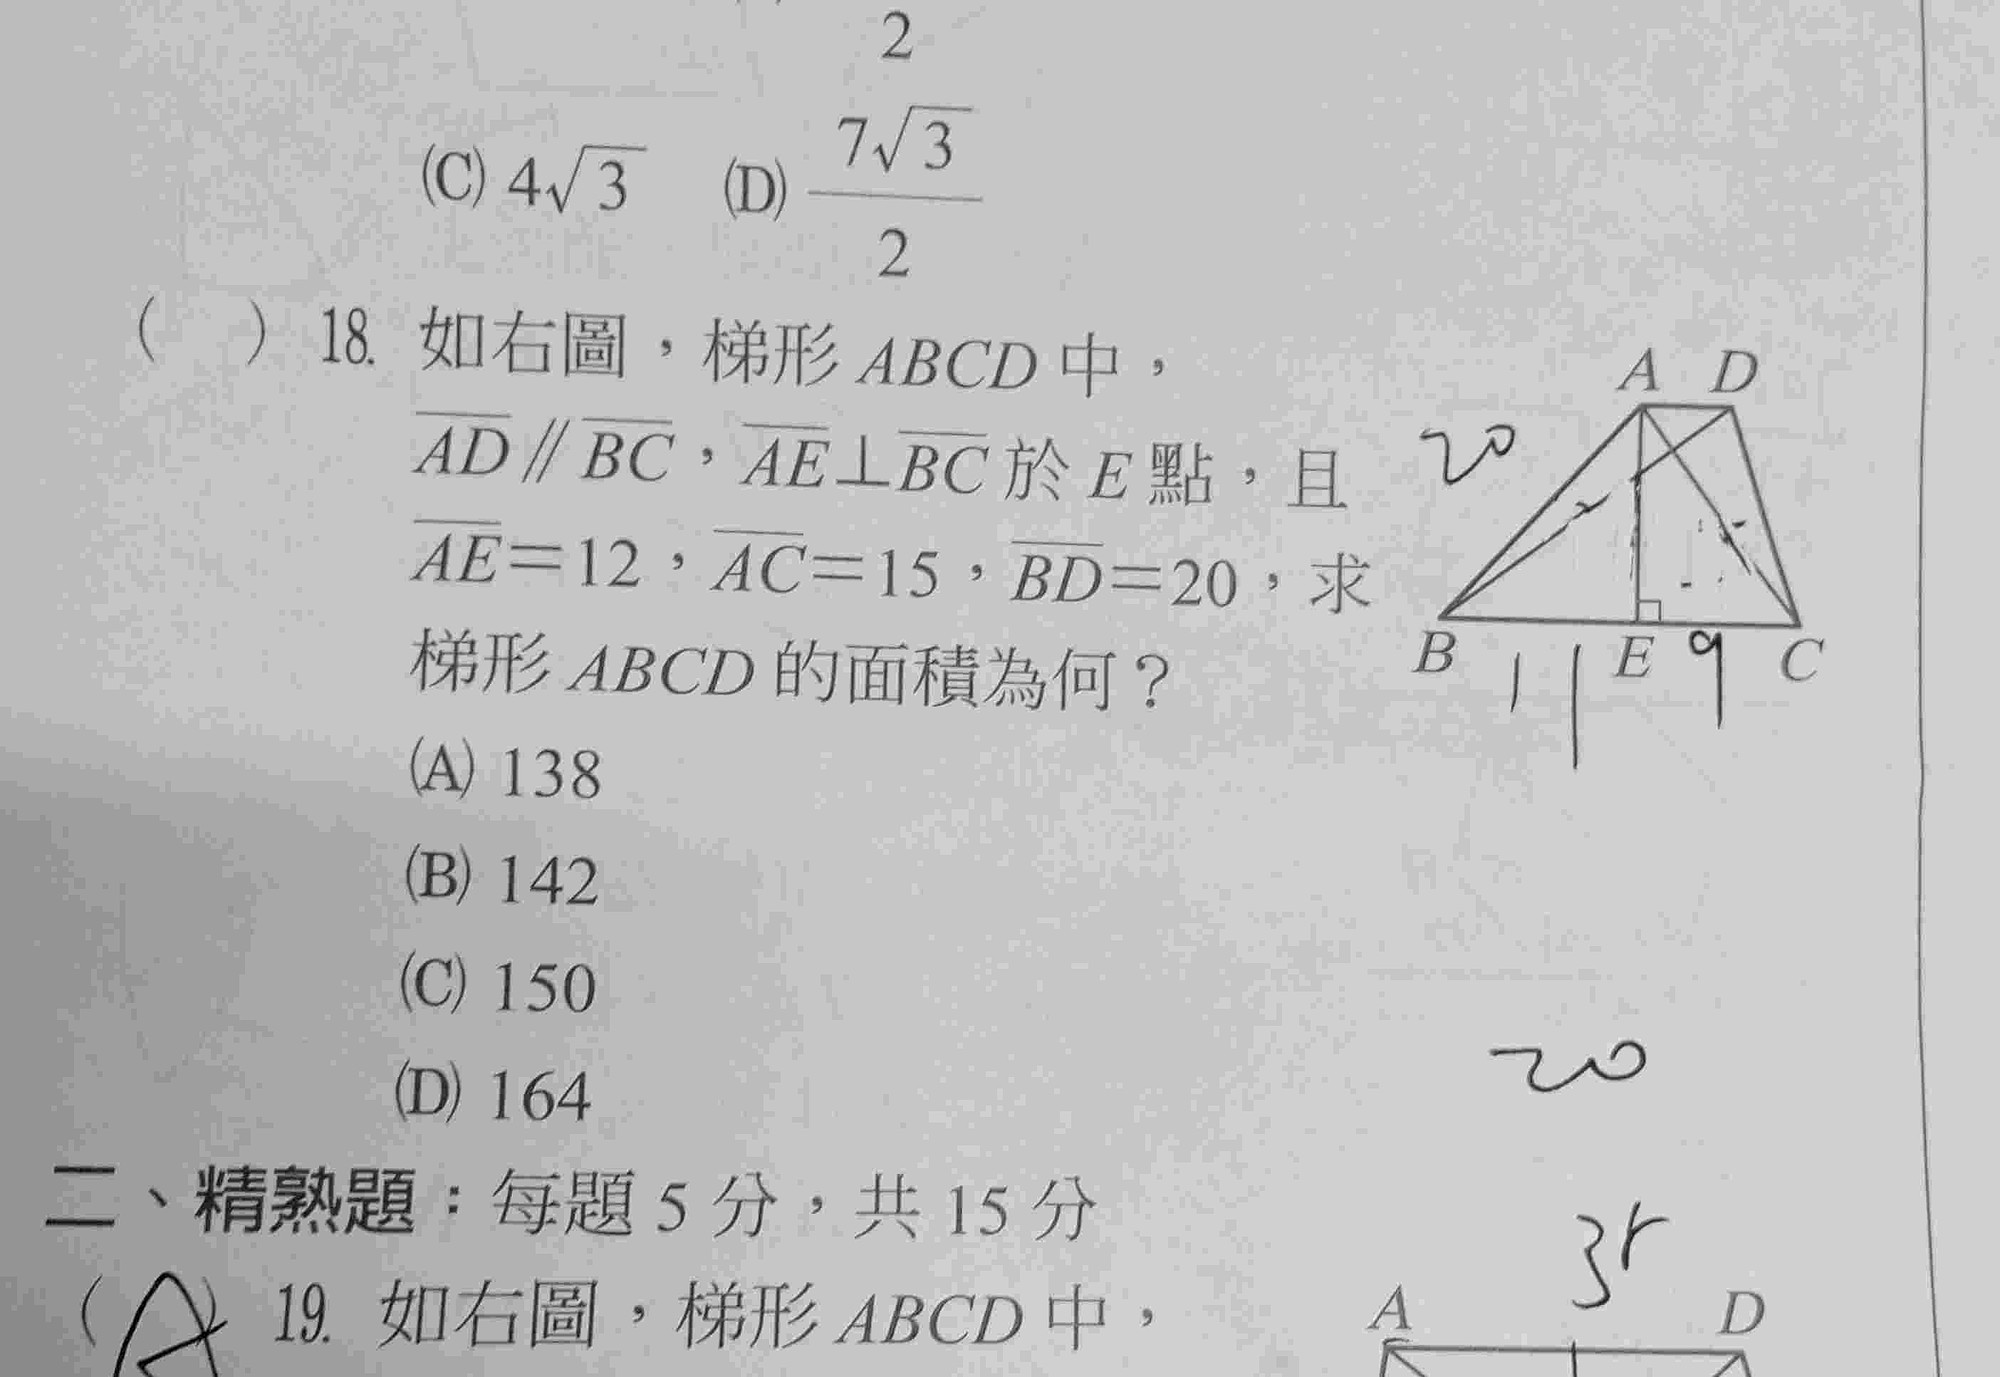 2
(C) 4√3 (D) 7√3
2
( ) 18. 如右圖，梯形 ABCD 中，
AD∥BC，AE⊥BC 於 E 點，且
AE=12，AC=15，BD=20，求
梯形 ABCD 的面積為何？
A D
20
B 11 E 9 C
(A) 138
(B) 142
(C) 150
(D) 164
20
二、精熟題：每題 5 分，共 15 分
(A) 19. 如右圖，梯形 ABCD 中，
A D